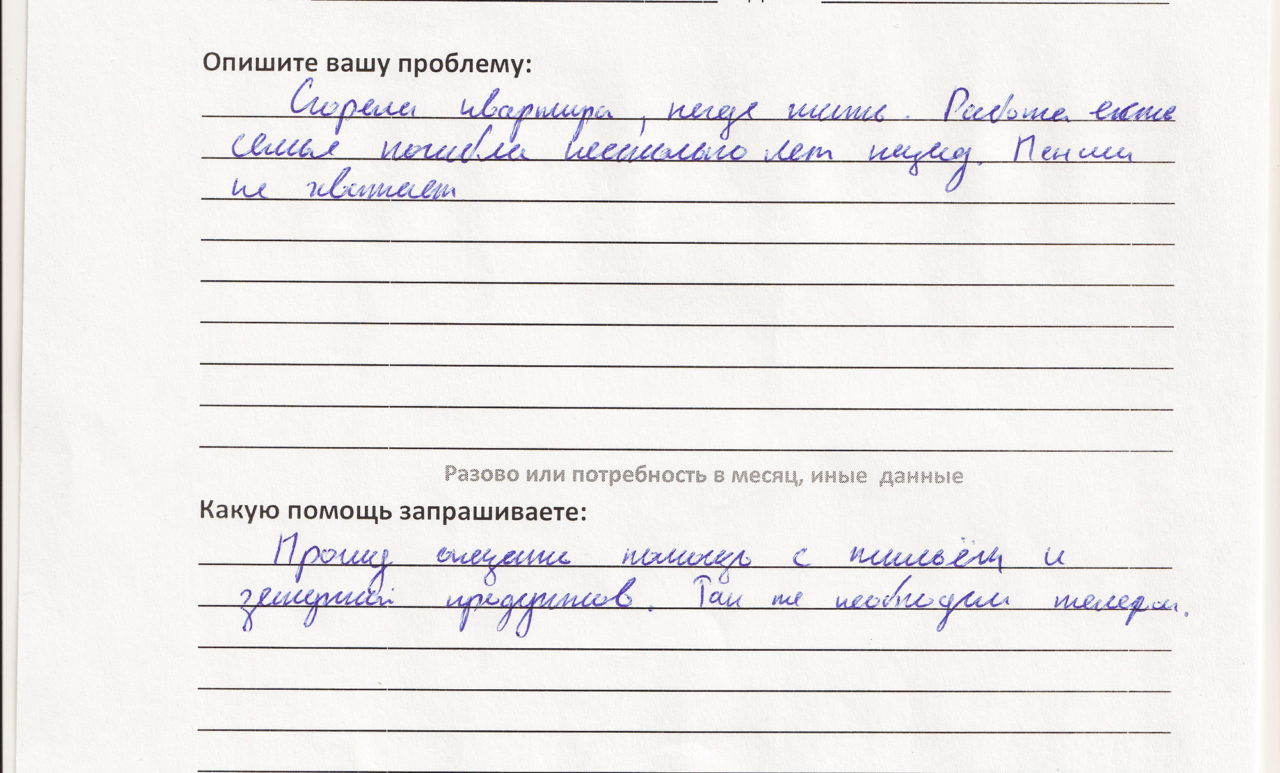 Опишите вашу проблему:
Сгорела квартира, негде жить. Работа есть
семья погибла несколько лет назад. Пенсии
не хватает
Разово или потребность в месяц, иные данные
Какую помощь запрашиваете:
Прошу оказать помощь с жильём и
продуктов. Так же необходим телефон.